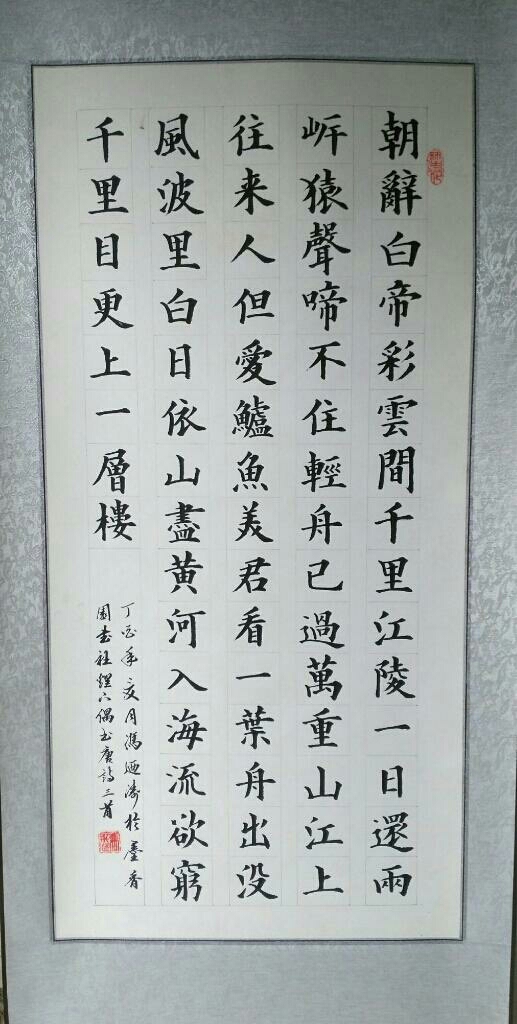 朝辭白帝彩雲間千里江陵一日還兩
岍猿聲啼不住輕舟已過萬重山江上
往来人但愛鱸魚美君看一葉舟出没
風波里白日依山盡黄河入海流欲窮
千里目更上一層樓
丁酉年二月馮廼濤於臺香
書社 偶书唐詩三首